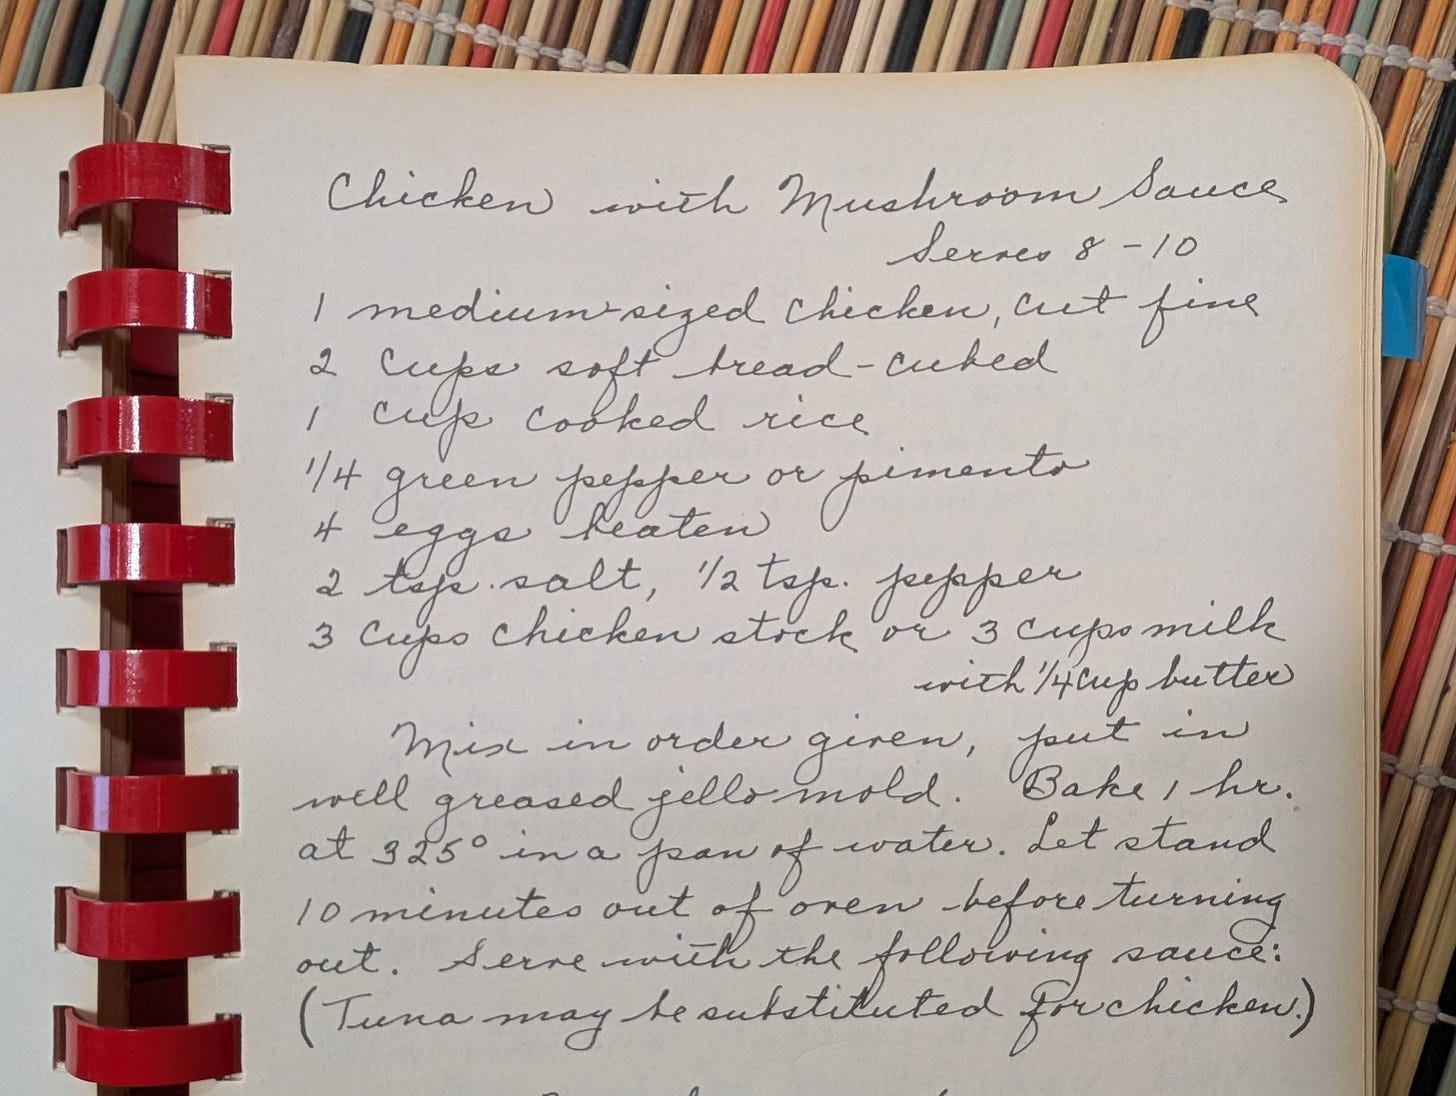 Chicken with Mushroom Sauce
Serves 8-10
1 medium-sized chicken, cut fine
2 cups soft bread-cubed
1 cup cooked rice
1/4 green pepper or pimento
4 eggs beaten
2 tsp. salt, 1/2 tsp. pepper
3 cups chicken stock or 3 cups milk
with 1/4 cup butter
Mix in order given, put in
well greased jello mold. Bake 1 hr.
at 325° in a pan of water. Let stand
10 minutes out of oven before turning
out. Serve with the following sauce:
(Tuna may be substituted for chicken.)